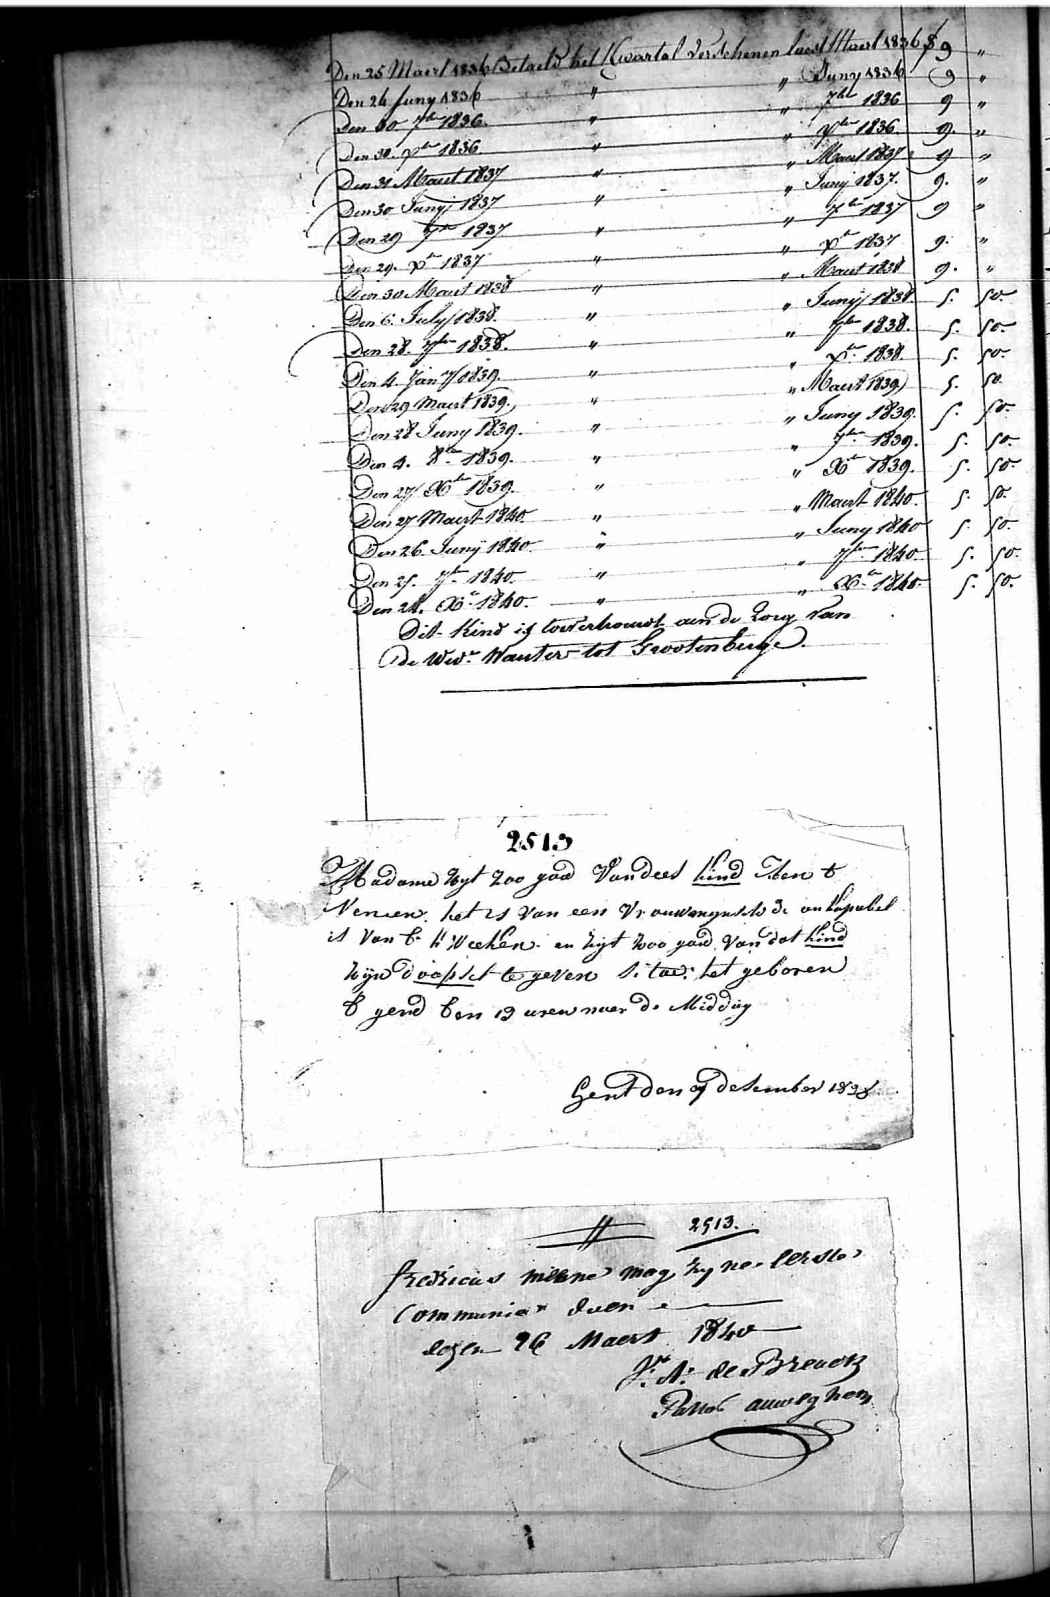 Den 25 Maert 1836 Betaeld het Kwartal verschenen laest Maert 1836 f 9 "
Den 26 Juny 1836 " " Juny 1836 9 "
Den 30 7ber 1836. " " 7ber 1836 9 "
Den 30. Xber 1836 " " Xber 1836. 9. "
Den 31 Maert 1837 " " Maert 1837 9 "
Den 30 Junij 1837 " " Junij 1837. 9. "
Den 29 7ber 1837 " " 7ber 1837 9 "
Den 29. Xber 1837 " " Xber 1837 9. "
Den 30 Maert 1838 " " Maert 1838 9. "
Den 6. July 1838. " " Junij 1838. 5. 50.
Den 28. 7ber 1838. " " 7ber 1838. 5. 50.
Den 4. Jany 1839. " " Xber 1838. 5. 50.
Den 29 Maert 1839. " " Maert 1839 5. 50.
Den 28 Juny 1839. " " Juny 1839. 5. 50.
Den 4. 8ber 1839. " " 7ber 1839. 5. 50.
Den 27 Xber 1839. " " Xber 1839. 5. 50.
Den 27 Maert 1840. " " Maert 1840. 5. 50.
Den 26. Junij 1840. " " Juny 1840 5. 50.
Den 25. 7ber 1840. " " 7ber 1840. 5. 50.
Den 24. Xber 1840. " " Xber 1840. 5. 50.
Dit Kind is toevertrouwt aen de Zorg van
de Wed.e Wauters tot Grootenberge.
2513
Madame zyt zoo goed van dees kind
het is van een
is van en zyt zoo goed van dat kind
zijn doopsel te geven het geboren
gend 12 uren naer de Middag
Gent den 9 desember 1828
2513.
fredricus mag zyne Eerste
Communie doen
dezen 26 Maert 1840
J. N. de Brenck
Pastor auweghem